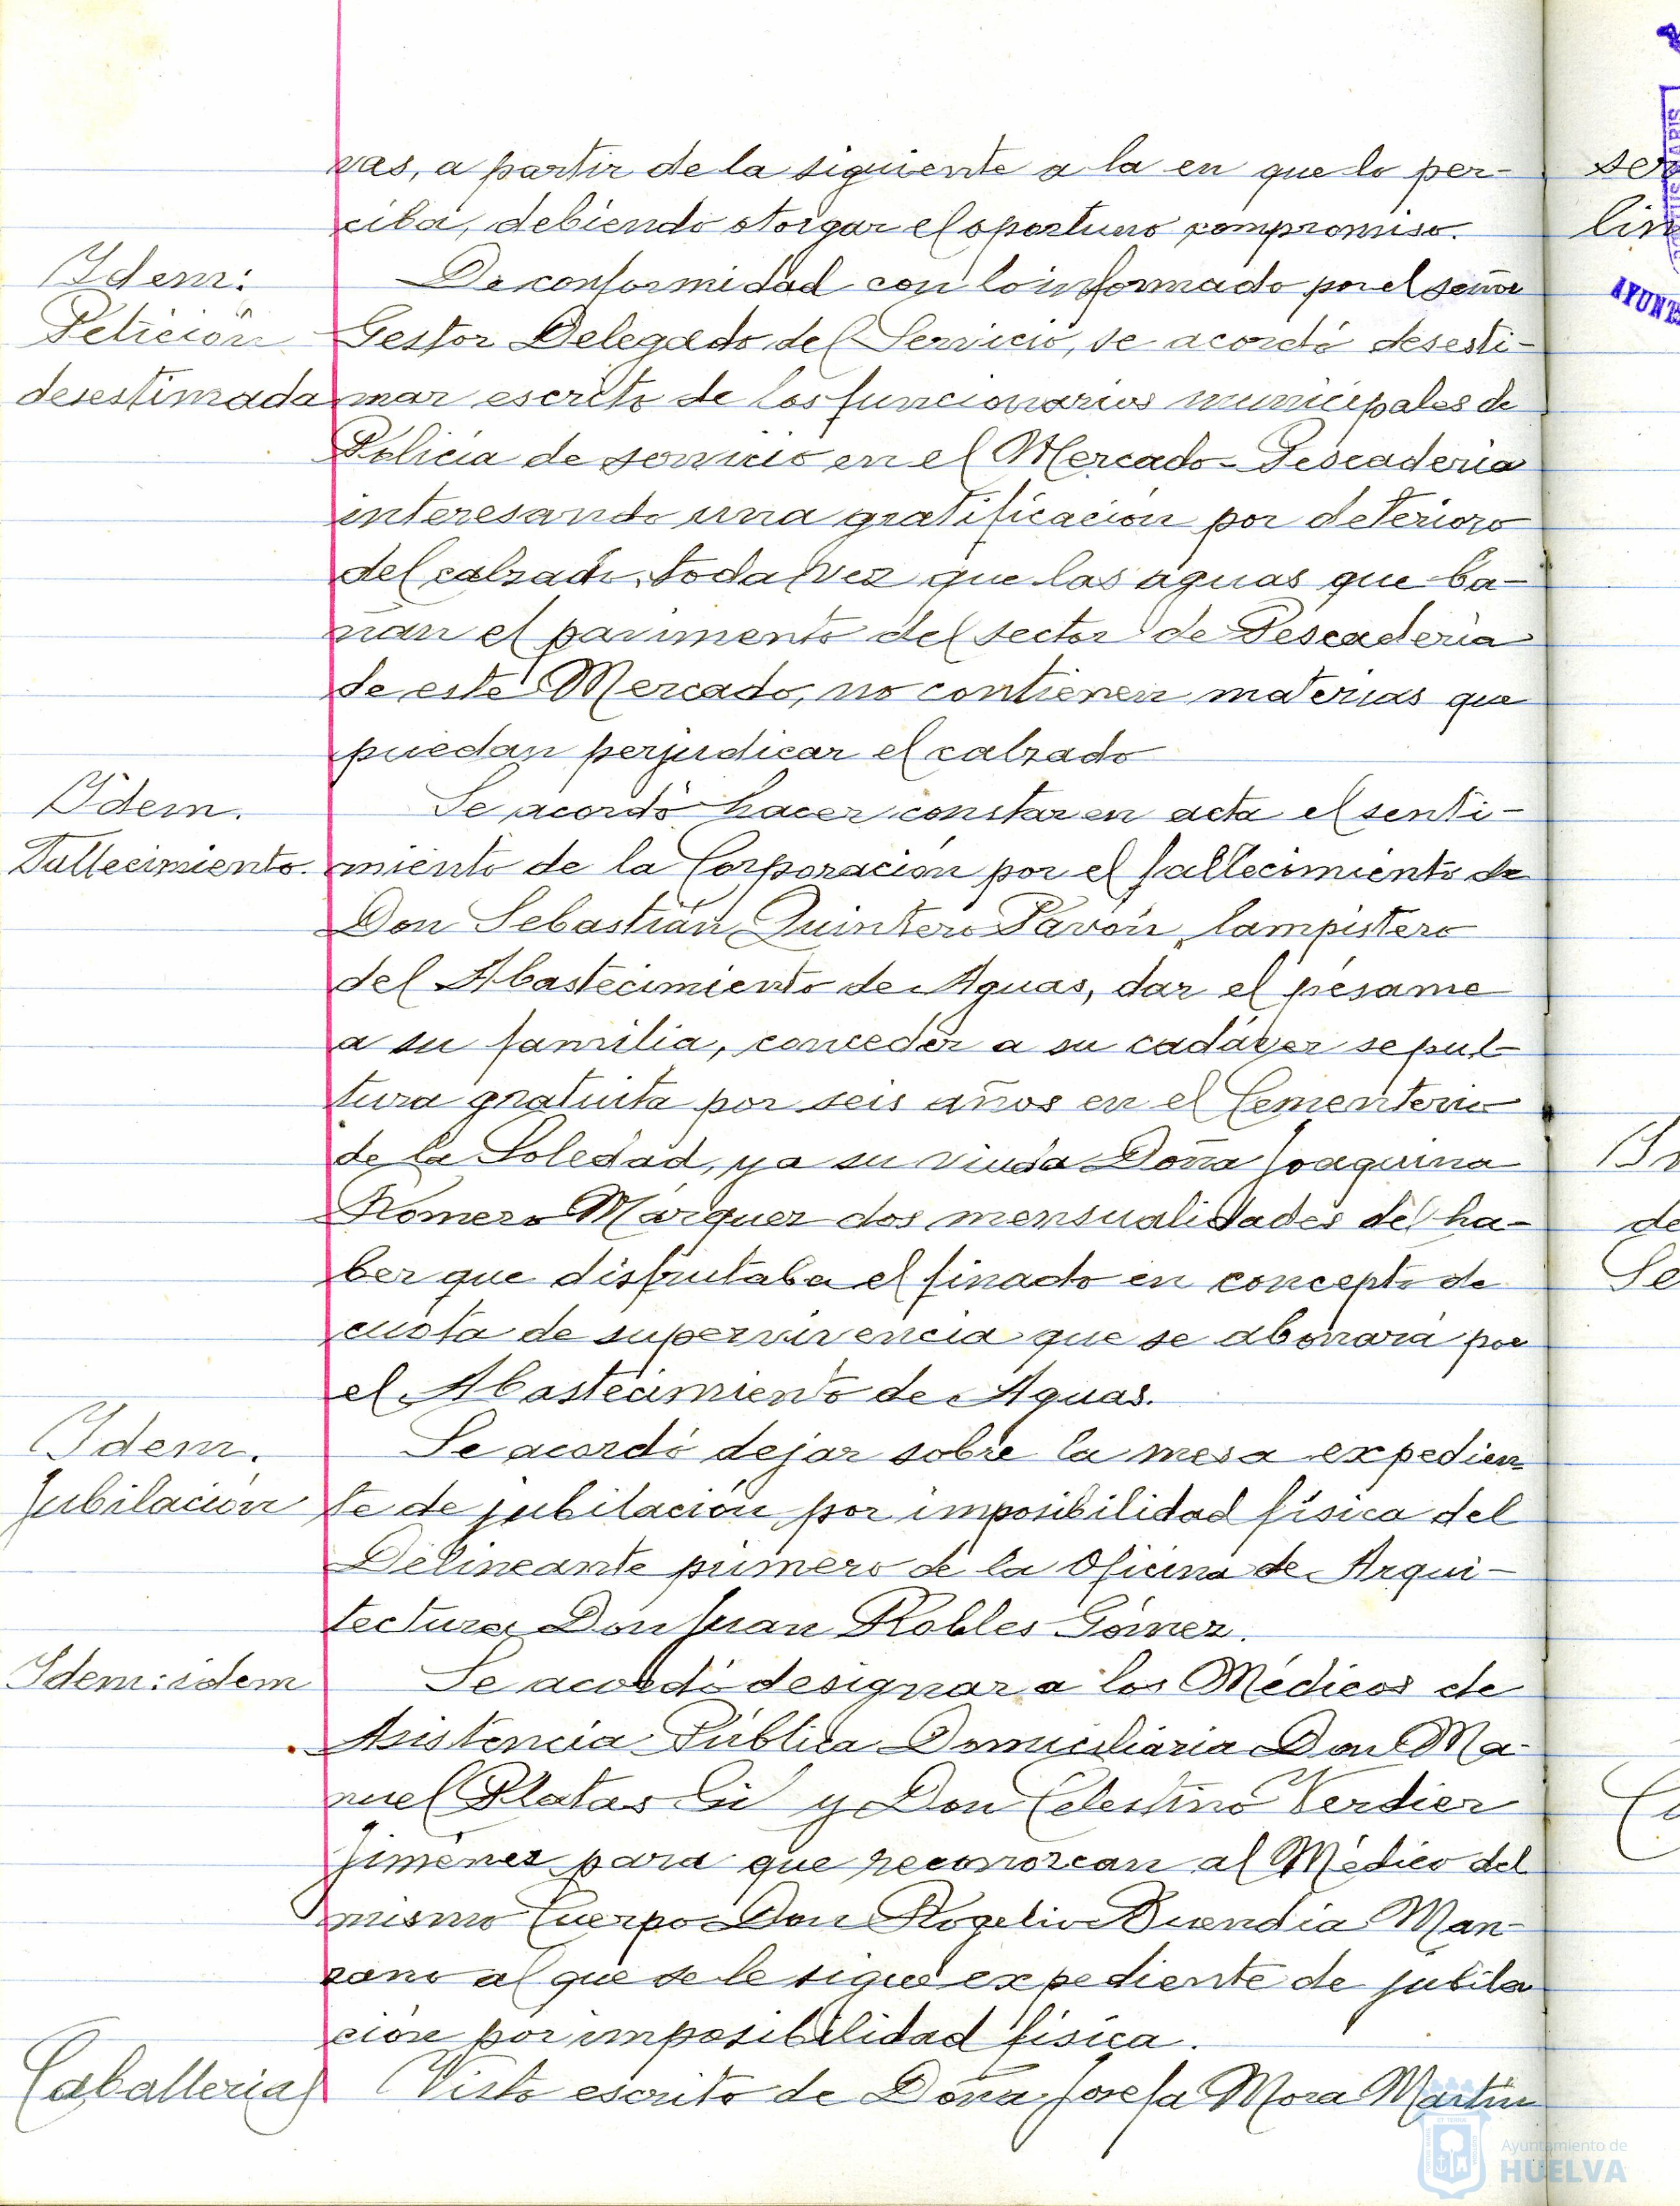 vas, a partir de la siguiente a la en que lo per-
ciba, debiendo otorgar el oportuno compromiso.
Idem:
Petición
desestimada
De conformidad con lo informado por el señor
Gestor Delegado del Servicio, se acordó desesti-
mar escrito de los funcionarios municipales de
Policía de servicio en el Mercado-Pescadería
interesando una gratificación por deterioro
del calzado, toda vez que las aguas que ba-
ñan el pavimento del sector de Pescadería
de este Mercado, no contienen materias que
puedan perjudicar el calzado
Idem.
Fallecimiento.
Se acordó hacer constar en acta el senti-
miento de la Corporación por el fallecimiento de
Don Sebastián Quintero Pavón, lampistero
del Abastecimiento de Aguas, dar el pésame
a su familia, conceder a su cadáver sepul-
tura gratuita por seis años en el Cementerio
de la Soledad, y a su viuda Doña Joaquina
Romero Márquez dos mensualidades del ha-
ber que disfrutaba el finado en concepto de
cuota de supervivencia que se abonará por
el Abastecimiento de Aguas.
Idem.
Jubilación
Se acordó dejar sobre la mesa expedien-
te de jubilación por imposibilidad física del
Delineante primero de la Oficina de Arqui-
tectura Don Juan Robles Gómez.
Idem: idem
Se acordó designar a los Médicos de
Asistencia Pública Domiciliaria Don Ma-
nuel Platas Gil y Don Celestino Verdier
Jiménez para que reconozcan al Médico del
mismo Cuerpo Don Rogelio Buendía Man-
zano al que se le sigue expediente de jubila
ción por imposibilidad física.
Caballerías
Visto escrito de Doña Josefa Mora Martín
ser
lin
AYUNT
de
Se
Ayuntamiento de
HUELVA